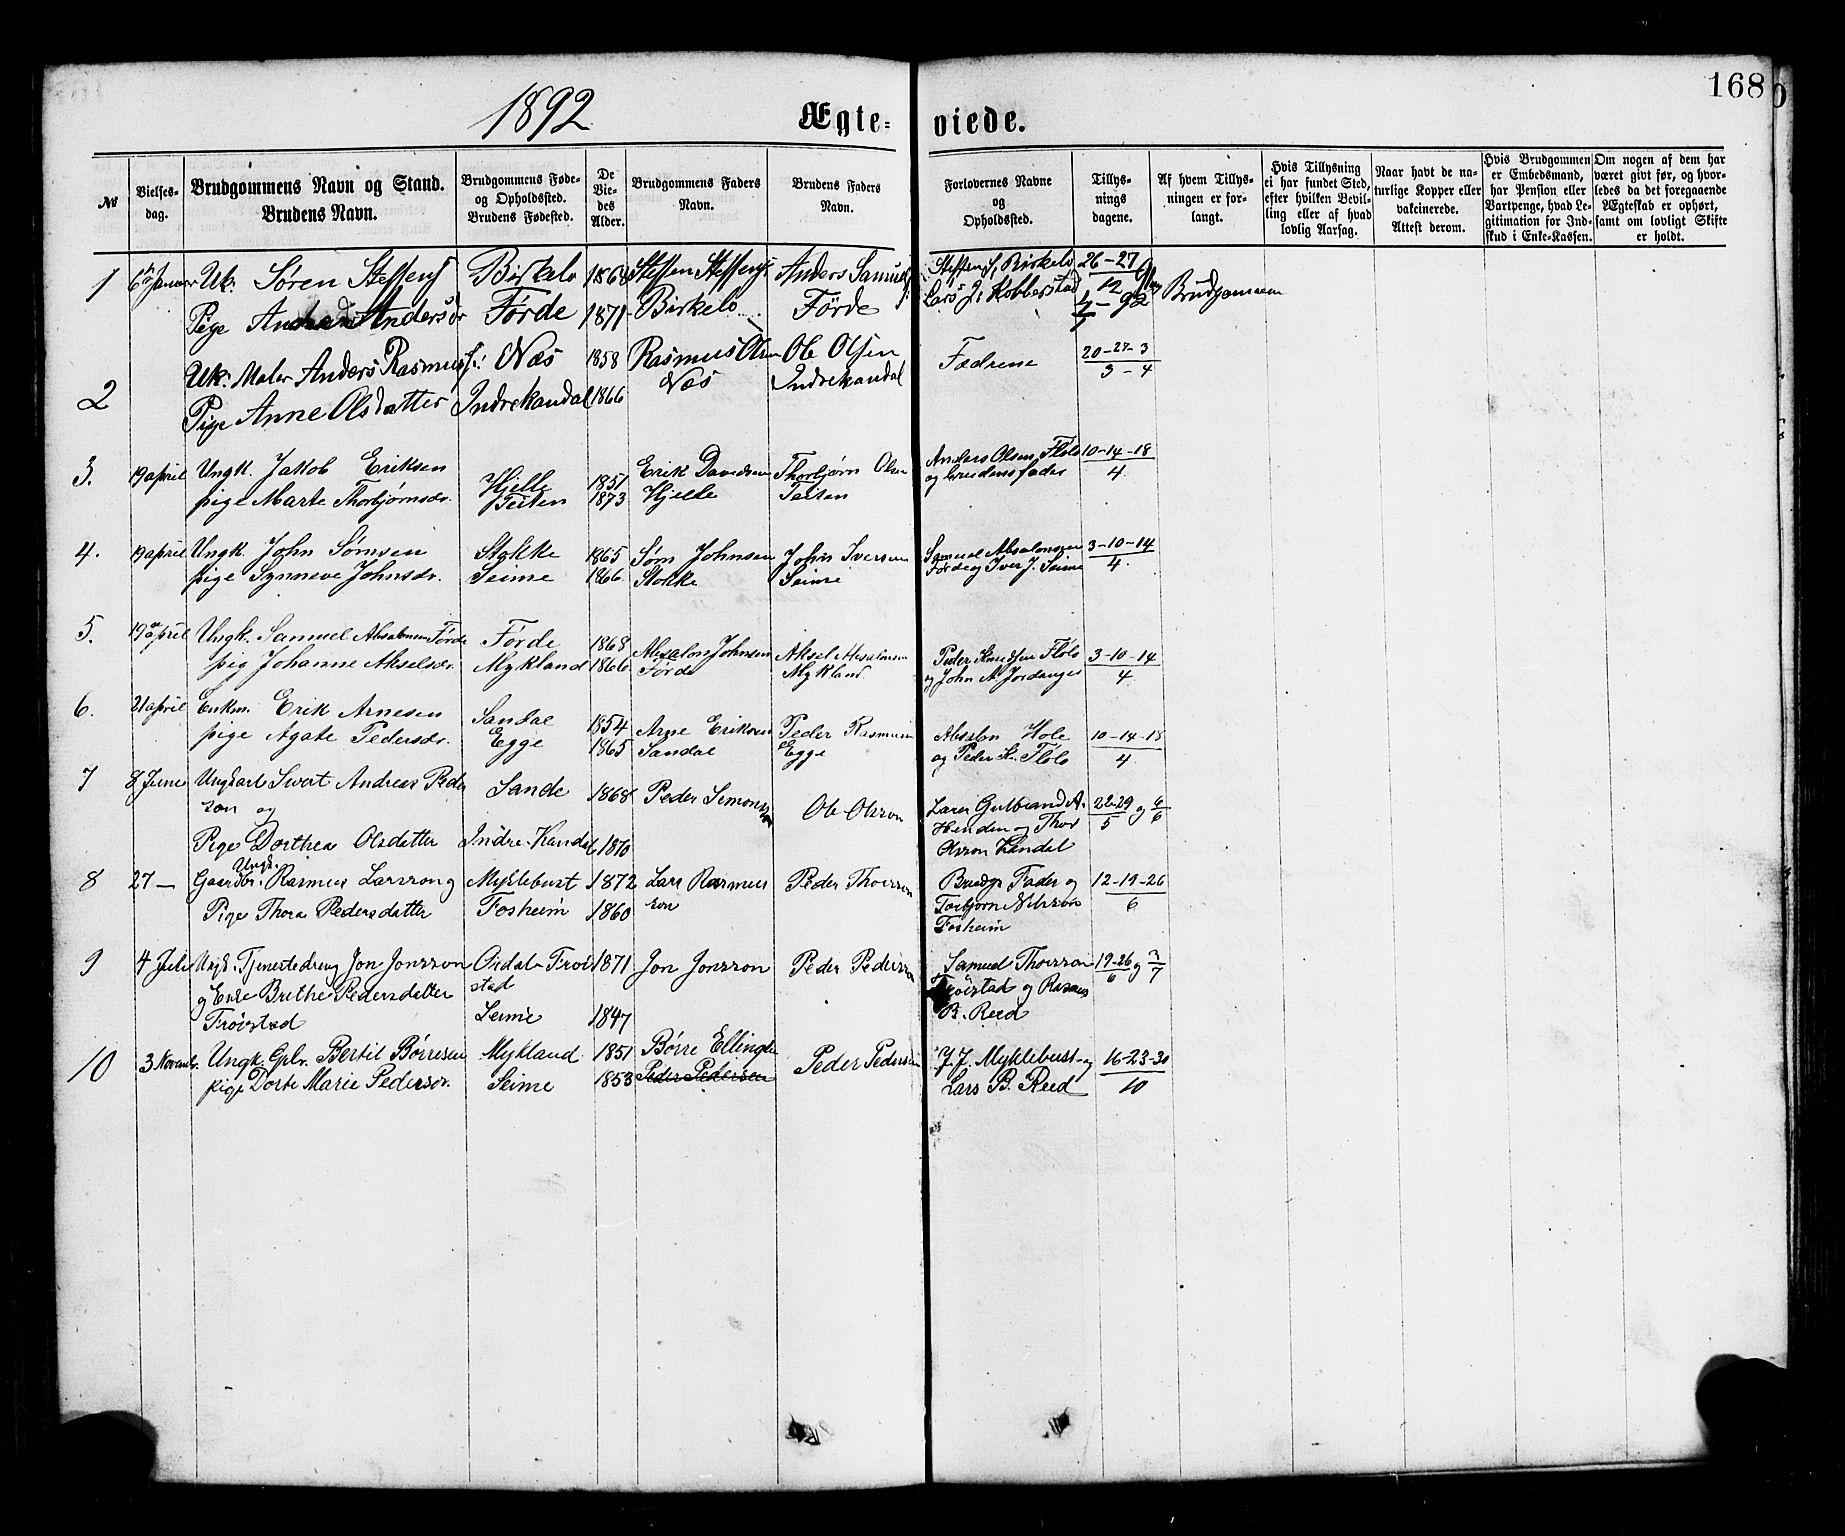 168
1892
Ægte- viede.
№
Vielses-
dag.
Brudgommens Navn og Stand.
Brudens Navn.
Brudgommens Føde-
og Opholdssted.
Brudens Fødested.
De
Vie-
des
Alder.
Brudgommens Faders
Navn.
Brudens Faders
Navn.
Forlovernes Navne
og
Opholdssted.
Tillys-
nings
dagene.
Af hvem Tillys-
ningen er for-
langt.
Hvis Tillysning
ei har fundet Sted,
efter hvilken Bevil-
ling eller af hvad
lovlig Aarsag.
Naar havt de na-
turlige Kopper eller
vakcinerede.
Attest derom.
Hvis Brudgommen
er Embedsmand,
har Pension eller
Vartpenge, hvad Le-
gitimation for Ind-
skud i Enke-Kassen.
Om nogen af dem har
været givt før, og hvor-
ledes da det foregaaende
Ægteskab er ophørt,
samt om lovligt Skifte
er holdt.
1 6 Januar Uk. Søren Steffens Birkelo Steffen Steffens Anders Samuels Steffen S. Birkelo 26-27
Pige Andersdr Førde 1871 Birkelo Førde Lars J. Kobberstad 12 92 Brudgommen
2 Uk. Maler Anders Rasmuss: Næs 1858 Rasmus Olsen Ole Olsen Fædrene 20-27-3
Næs Indrekandal 3-4
Pige Anne Olsdatter Indrekandal 1866
3. 19 april Ungk. Jakob Eriksen Hjelle 1851 Erik Davidsen Thorbjørn Olsen Anders Olsen Fløle 10-14-18
pige Marte Thorbjørnsdr. Teiten 1873 Hjelle Teiten og brudens fader 4.
4. 19 april Ungk. John Sørnsen Stokke 1865 Sørn Johnsen John Iversen Samuel Absalonsen 3-10-14
pige Synneve Johnsdr. Seime 1866 Stokke Seime Førde og Iver J. Seime 4.
5. 19 april Ungk. Samuel Absalonsen Førde Førde 1868 Absalon Johnsen Aksel Absalonsen Peder Knudsen Fløle 3-10-14
pig Johanne Akselsdr. Mykland 1866 Førde Mykland og John A. Jordanger 4.
6. 21 april Enkm. Erik Arnesen Sandal 1854 Arne Eriksen Peder Rasmusen Absalon Hole 10-14-18
pige Agate Pedersdr. Egge 1865 Sandal Egge og Peder K. Fløle 4.
7 8 Juni Ungkarl Sivert Andreas Peder Sande 1868 Peder Simonsson Ole Olsson Lars Gulbrand A. 22-29 og 6
son og Henden og Thor 5 6
Pige Dorthea Olsdatter Indre-Kandal 1870 Olsson Kandal
8 27 — Gaardbr. Ungk. Rasmus Larsson og Myklebust 1872 Lars Rasmus Peder Thorsson Brudgs Fader og 12-19-26
Pige Thora Pedersdatter Fosheim 1860 son Torbjørn Nilsson 6
Fosheim
9 4 Juli Ungk. Tjenestedreng Jon Jonsson Ordal-Frøi 1871 Jon Jonsson Peder Pedersson Samuel Thorsson 19-26 og 3
og Enke Brithe Pedersdatter stad Frøistad og Rasmus 6 7
Frøistad Seime 1847 B. Reed
10 3 Novemb. Ungk. Gbr. Bertil Børresen Mykland 1851 Børre Ellingsen Peder Pedersen J. J. Myklebust og 16-23-30
pige Dorte Marie Pedersdr. Seime 1853 Peder Pedersen Lars B. Reed 10